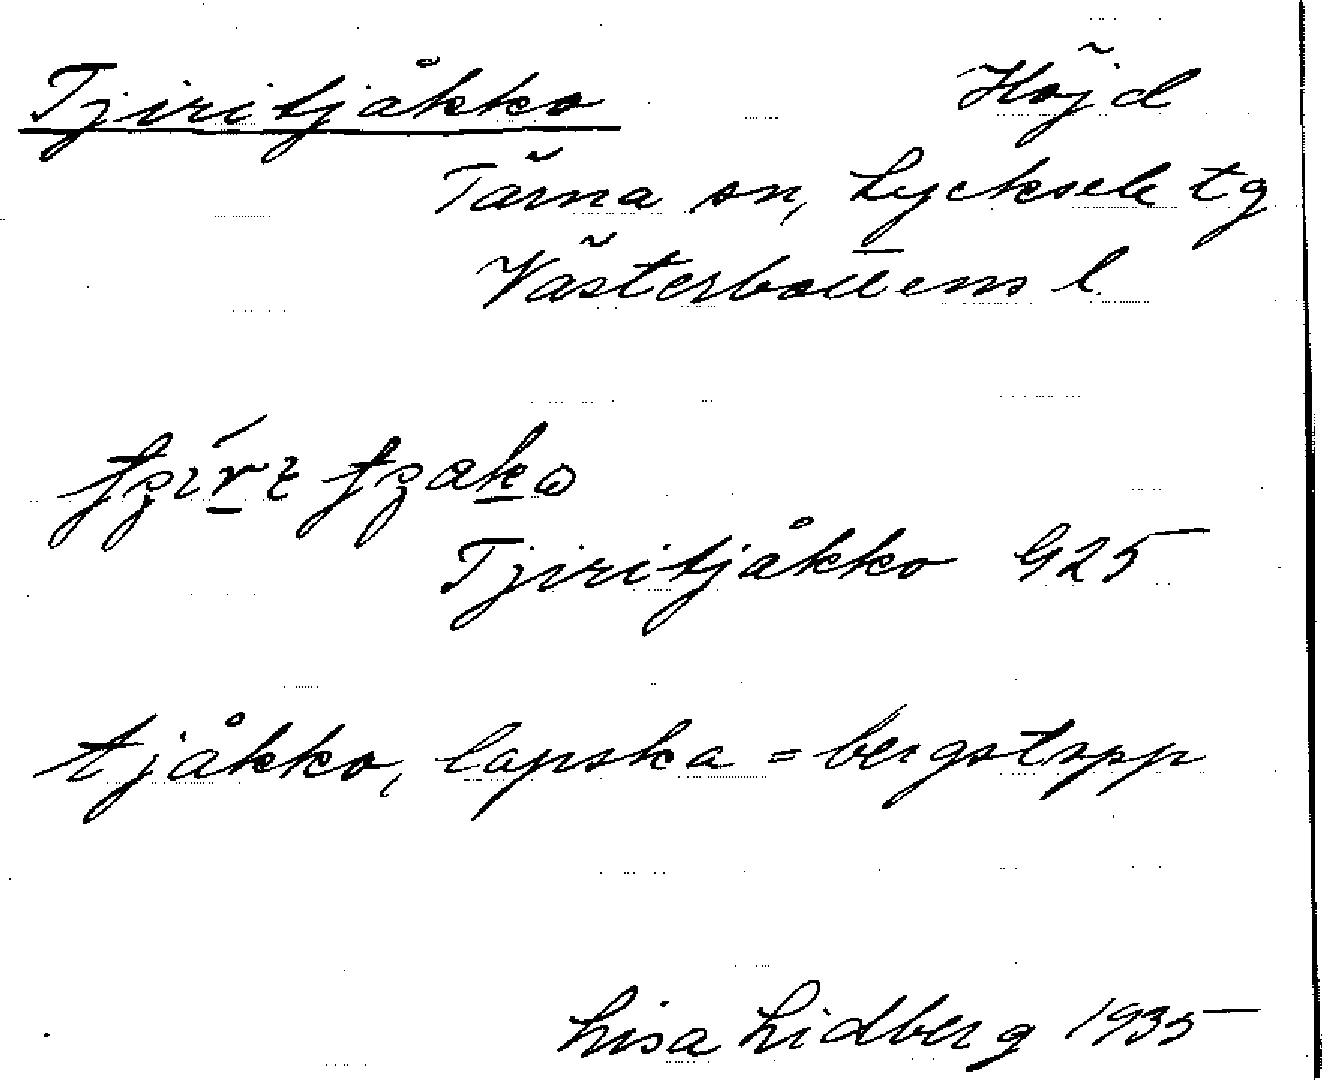 Tjiritjåkko Höjd
Tärna sn, Lycksele tg
Västerbottens l.
Tjiritjåkko G25
tjåkko, lapska = bergstopp
Lisa Lidberg 1935